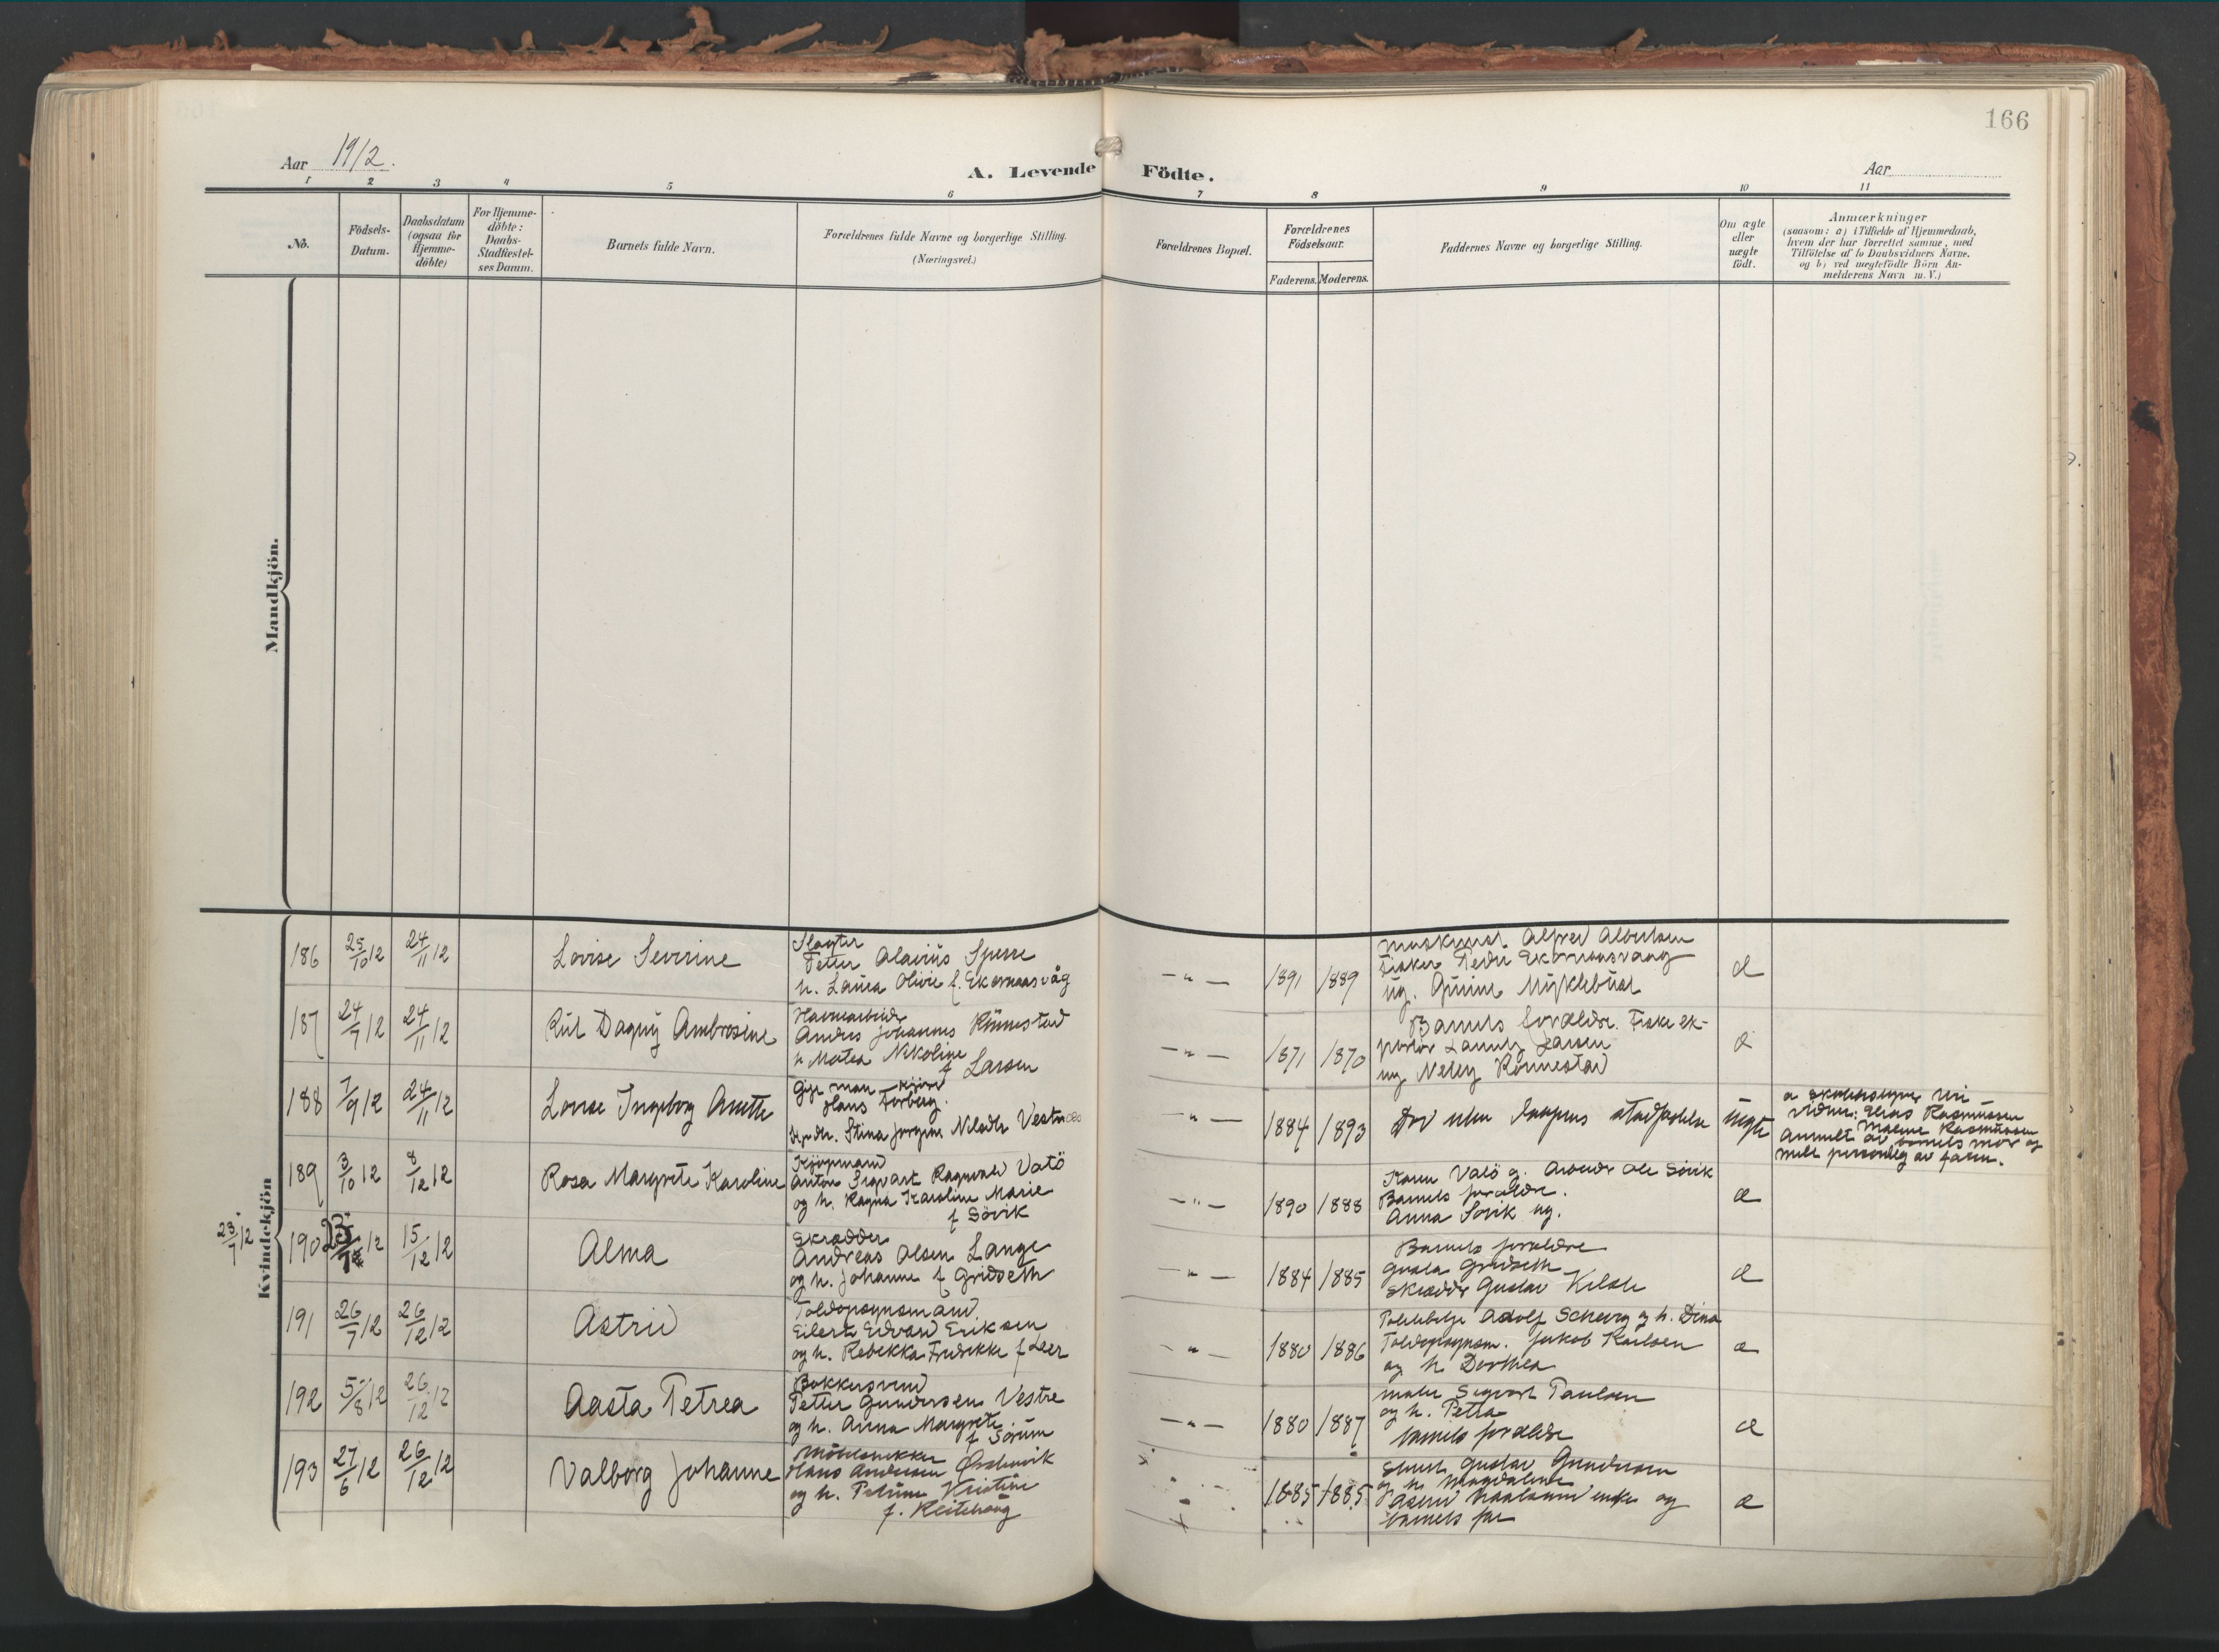 166
Aar 1912.
A. Levende Födte.
Aar
1 2 3 4 5 6 7 8 9 10 11
No.
Födsels-
Datum.
Daabsdatum
(ogsaa for
Hjemme-
döbte)
For Hjemme-
döbte:
Daabs-
Stadfæstel-
ses Datum.
Barnets fulde Navn.
Forældrenes fulde Navne og borgerlige Stilling.
(Næringsvei.)
Forældrenes Bopæl.
Forældrenes
Födselsaar.
Faderens. Moderens.
Faddernes Navne og borgerlige Stilling.
Om ægte
eller
uægte
födt.
Anmærkninger
(saasom: a) i Tilfælde af Hjemmedaab,
hvem der har forrettet samme, med
Tilföielse af to Daabsvidners Navne.
og b) ved uægtefödte Börn An-
melderens Navn m. V.)
Mandkjön.
Kvindekjön
186 25/10 12 24/11 12 Lovise Severine
Slagter
Petter Olavius Sperre
h. Laura Olivie f. Ekornaasvåg
-"- 1891 1889
Alfred Albertsen
Fisker Peder Ekornaasvaag
ug. Myklebust
æ
187 24/7 12 24/11 12 Rut Dagny Ambrosine
Havnearbeider
Anders Johannes Rönnestad
h Matea Nikoline
f Larsen
-"- 1871 1870
Barnets forældre. Fiske ek-
portör Larsen
ug Rönnestad
æ
188 7/9 12 24/11 12 Lovise Ingeborg Anette
Hans Torberg.
Stina Jorgine Vestnes
-"- 1884 1893
uegte
Elias Rasmussen
Rasmussen
Anmeldt av barnets mor og
personlig av faren.
189 3/10 12 8/12 12 Rosa Margrete Karoline
Kjöpmand
Anton Sigvart Ragnvald Vatö
og h. Ragna Karoline Marie
f Sövik
-"- 1890 1888
Karen Vatö g. Arbeider Ole Sövik
Barnets forældre.
Anna Sövik ug.
æ
23/7 12
190 23/7 12 15/12 12 Alma
Skrædder
Andreas Olsen Lange
og h. Johanne f Gridseth
-"- 1884 1885
Barnets forældre
Gusta Gridseth
Skrædder Gustav
æ
191 26/7 12 26/12 12 Astrid
Toldopsynsmand
Eilert Edvard Eriksen
og h. Rebekka Fredrikke f Leer
-"- 1880 1886
Adolf og h. Dina
Toldopsynsm. Jakob Karlsen
og h Dorthea
æ
192 5/8 12 26/12 12 Aasta Petrea
Bokkersvend
Petter Gundersen Vestre
og h. Anna Margrete
f Sörum
-"- 1880 1887
maler Sigvart Paulsen
og h. Petra
barnets forældre
æ
193 27/6 12 26/12 12 Valborg Johanne
Möbelsnekker
Hans Andersen
og h. Petrine Kristine
f. Reitehaug
1885 1885
Gustav Gundersen
og h. Magdalene
enke og
barnets far
æ